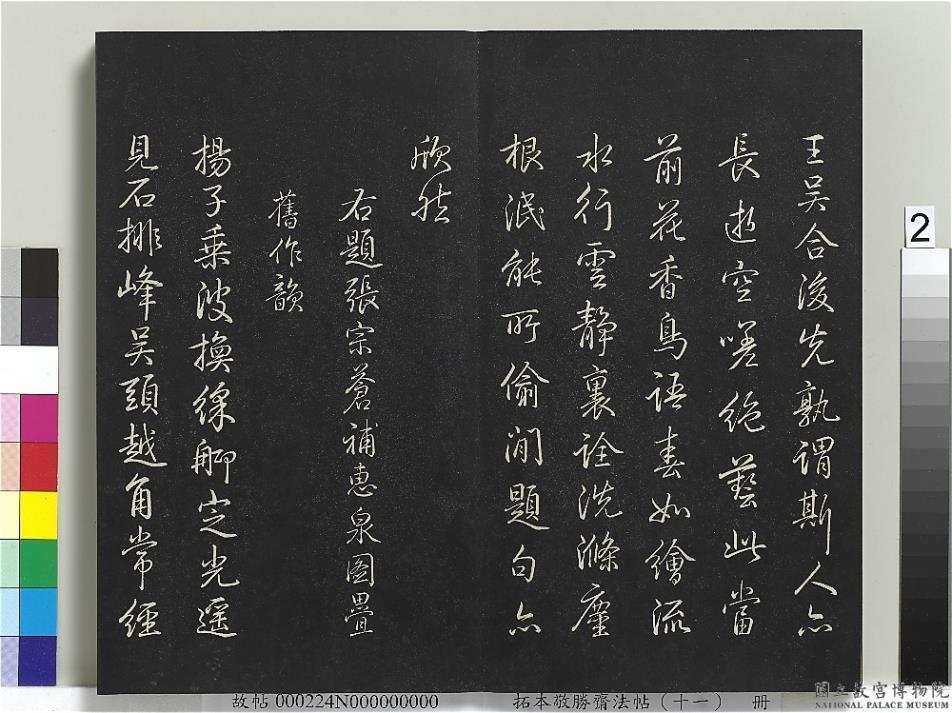 王吴合後先孰謂斯人亦
長逝空嗟絶藝此當
前花香鳥語春如繪流
水行雲静裏詮洗滌塵
根泯能所偷閒題句亦
欣然
右題張宗蒼補惠泉圖疊
舊作韻
揚子乗波換綵艀定光遥
見石排峰吴頭越角常經
2
故帖 000224N000000000
拓本敬勝齋法帖(十一) 册
國立故宮博物院
NATIONAL PALACE MUSEUM